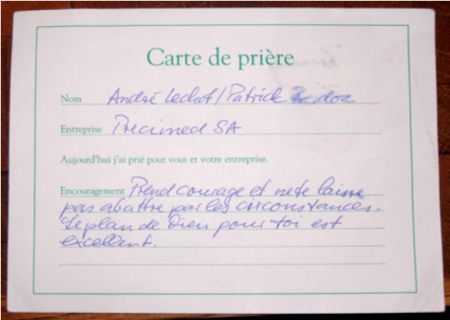 Carte de prière
Nom André Lechot/Patrick
Entreprise Precimed SA
Aujourd'hui j'ai prié pour vous et votre entreprise.
Encouragement Prend courage et ne te laisse
pas abattre par les circonstances.
Le plan de Dieu pour toi est
excellent.